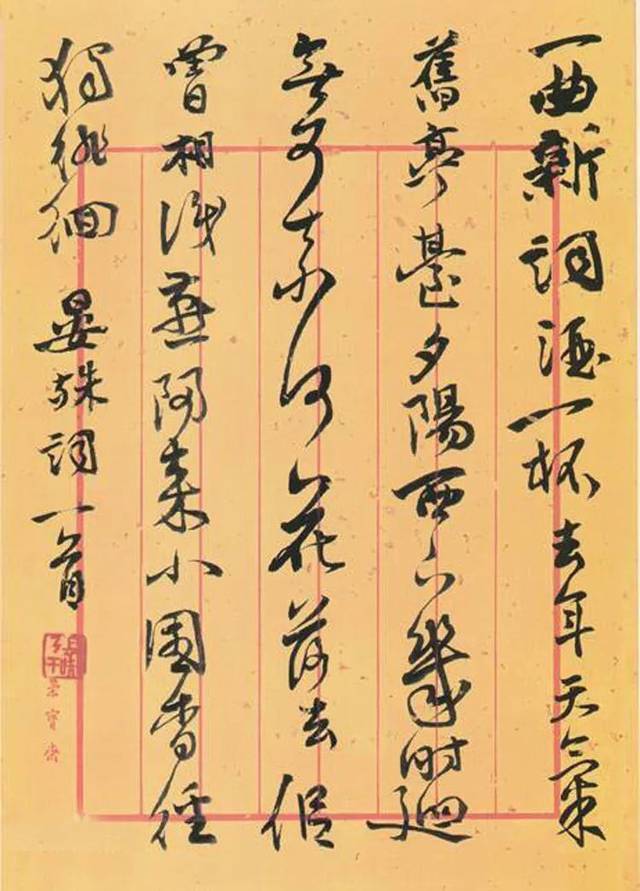 一曲新詞酒一杯去年天氣
舊亭臺夕陽西下幾時廻
無可奈何花落去佀
曾相識燕歸來小園香徑
獨徘徊 晏殊詞一首
榮寶齋